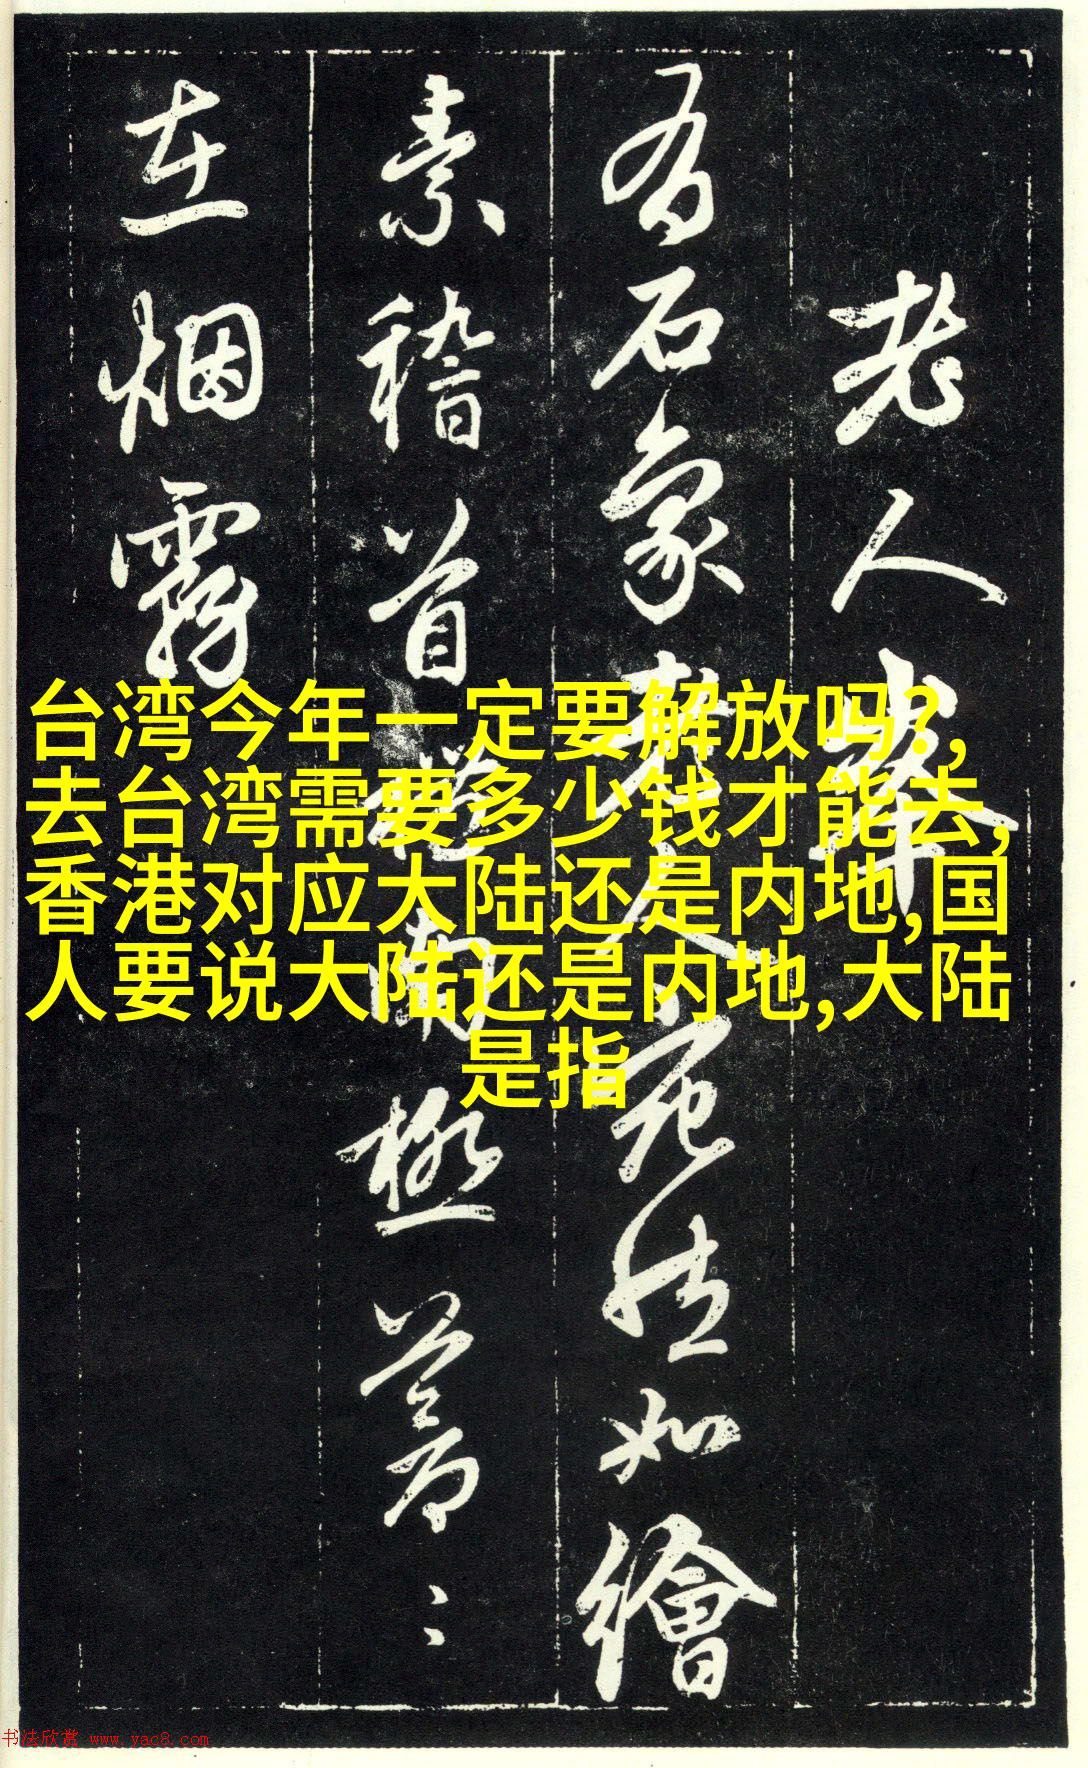 台湾今年一定要解放吗?,
去台湾需要多少钱才能去,
香港对应大陆还是内地,国
人要说大陆还是内地,大陆
是指
老人峯
有石象老人宛如繪
素稽首南極蒼〻
在烟霧
书法欣赏 www.yac8.com